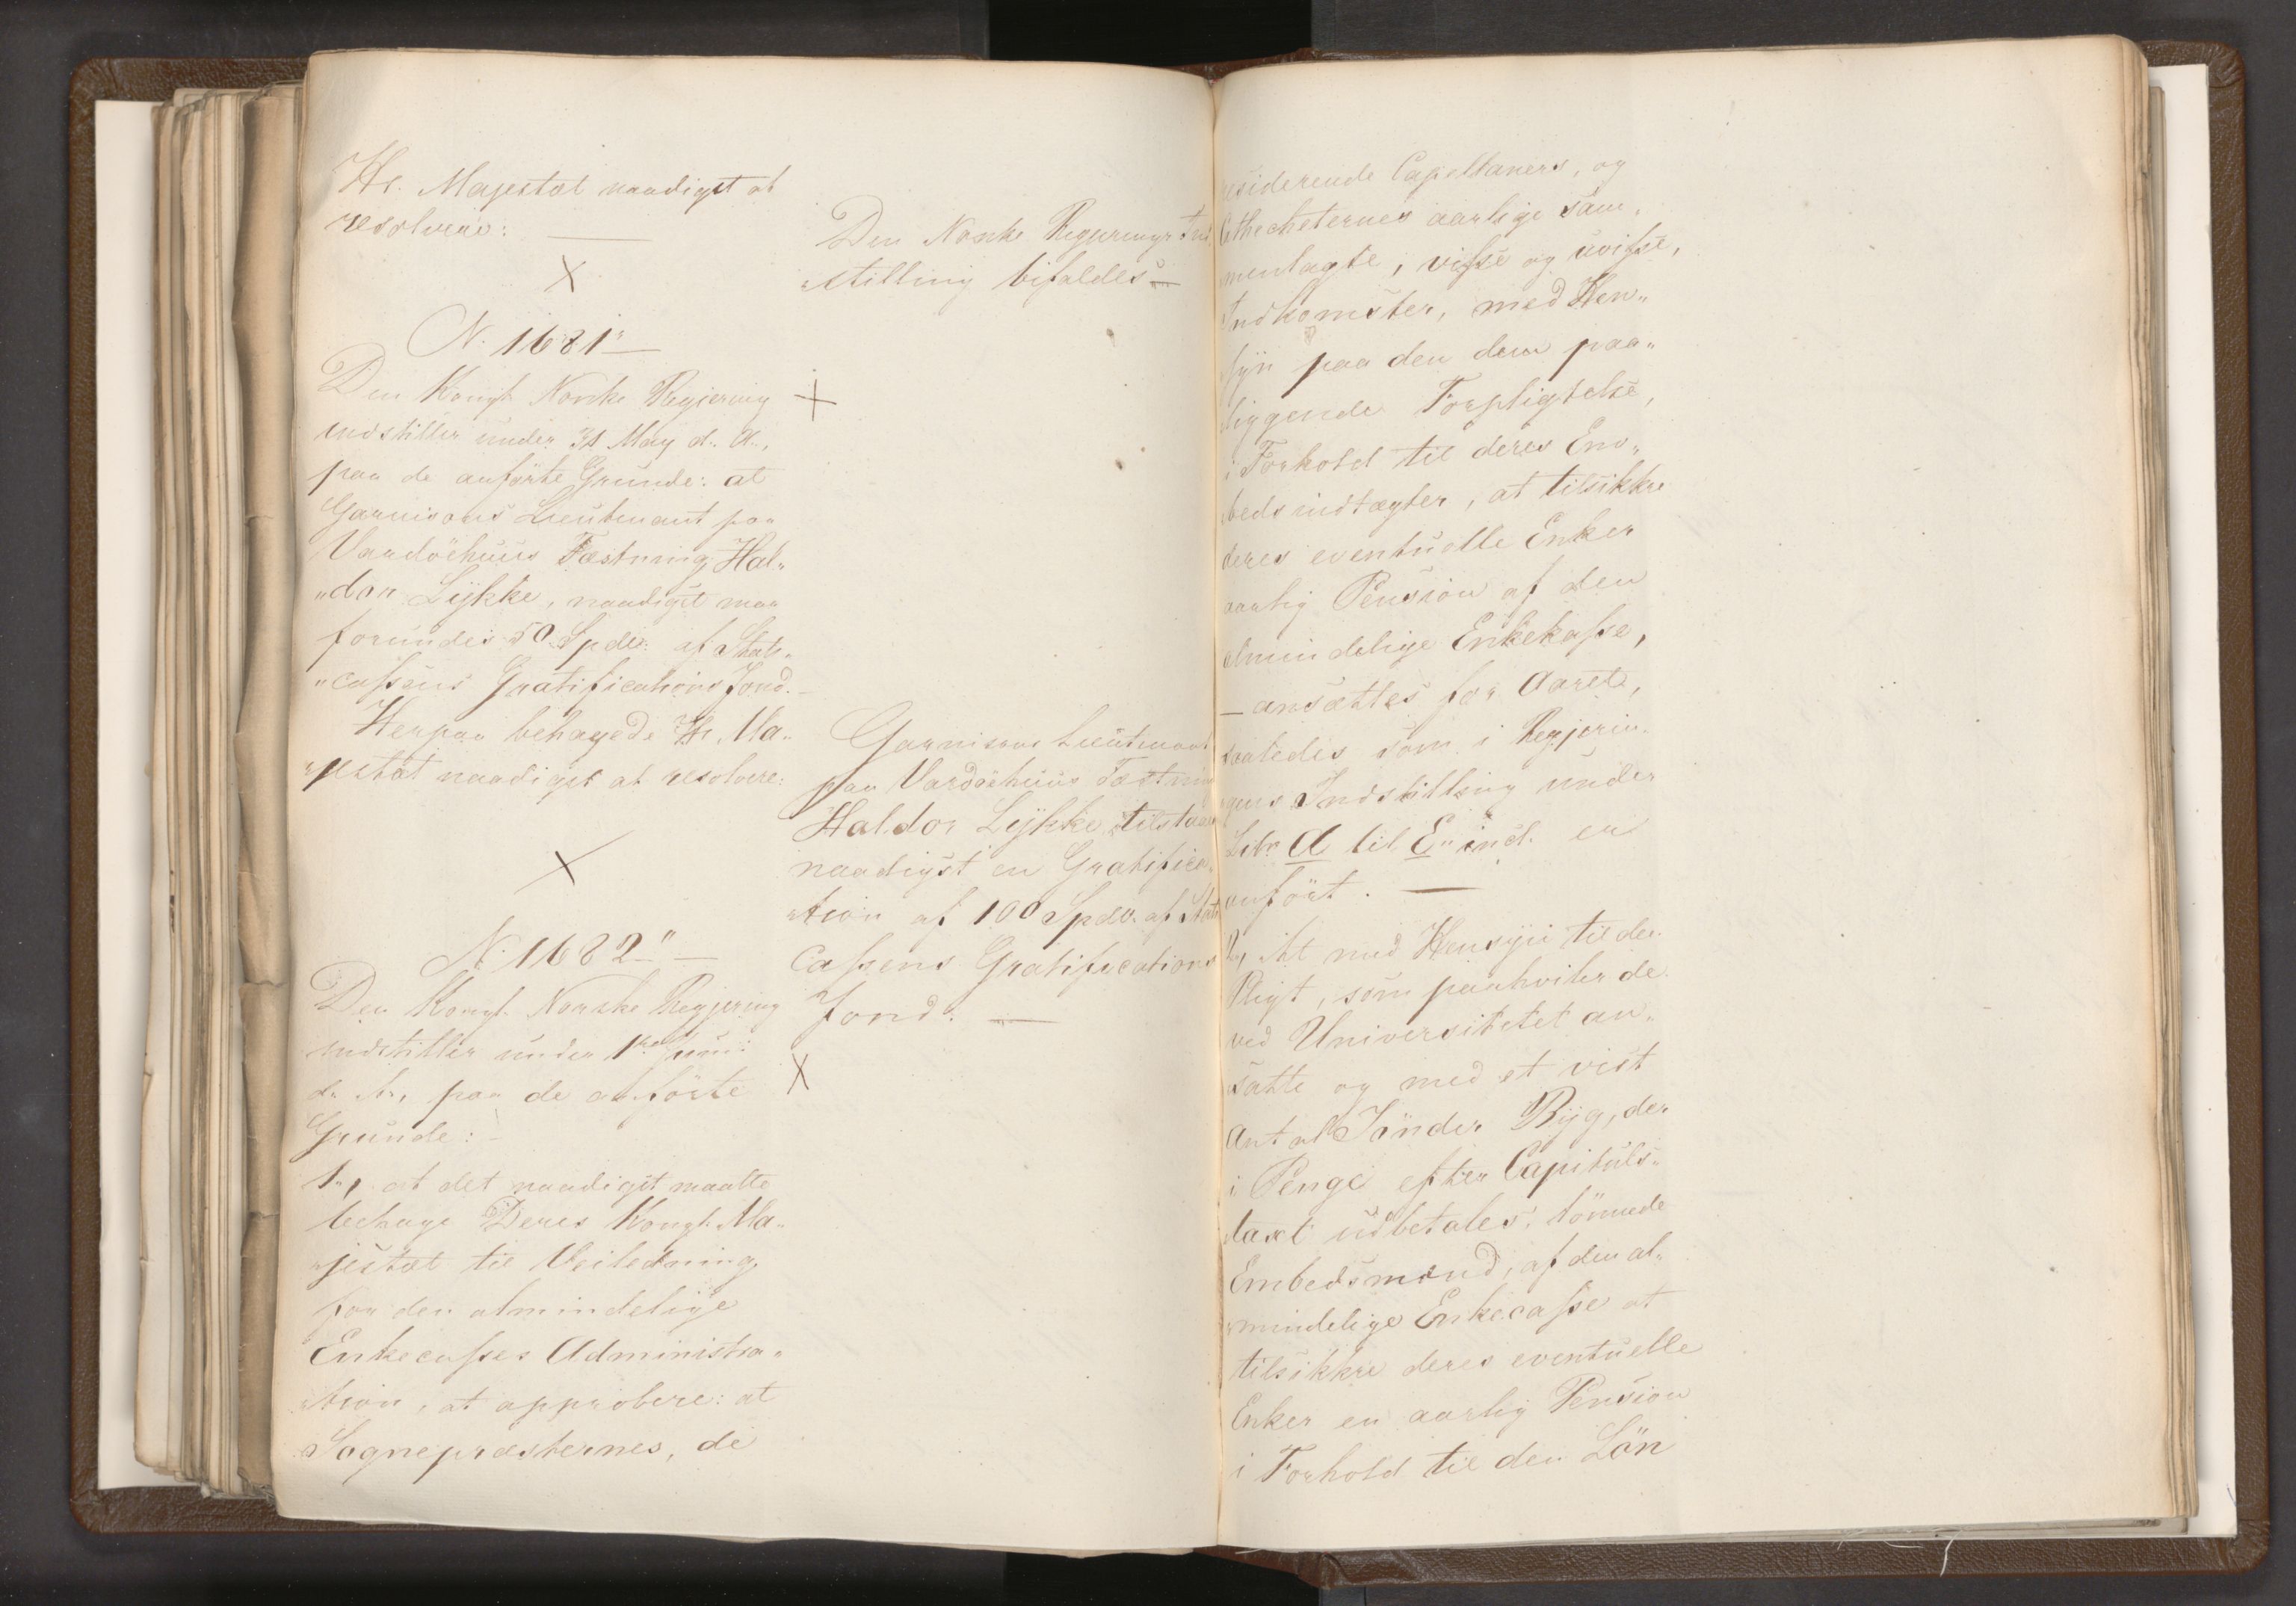 Hs. Majestæt naadigst at
resolvere: —
X
N. 1681" —
Den Kongl. Norske Regjering
indstiller under 31 May d. A.,
paa de anførte Grunde: at
Garnisons Lieutenant paa
Vardöehuus Fæstning Hal„
„dor Lykke, naadigst maa
forundes 50 Spdr: af Stats„
„cassens Gratifications fond. —
Herpaa behagede Hs. Ma„
„jestæt naadigst at resolvere:
X
N. 1682" —
Den Kongl. Norske Regjering
indstiller under 1ste Juni
d. A., paa de anförte
Grunde: —
1„, at det naadigst maatte
behage Deres Kongl. Ma„
„jestæt til Veiledning
for den almindelige
Enkecasses Administra„
„tion, at approbere: at
Sognepræsternes, de
Den Norske Regjerings Ind
„stilling bifaldes —
+
Garnisons Lieutenant
paa Vardöehuus Fæstning
Haldor Lykke tilstaaes
naadigst en Gratifica„
„tion af 100 Spdr. af Stats
Cassens Gratifications
fond. —
X
residerende Capellaners, og
Cathecheternes aarlige sam„
menlagte, visse og uvisse,
Indkomster, med Hen„
syn paa den dem paa„
liggende Forpligtelse,
i Forhold til deres Em„
beds indtægter, at tilsikkre
deres eventuelle Enker
aarlig Pension af den
almindelige Enkekasse,
— ansættes for Aaret,
saaledes som i Regjerin„
gens Indstilling under
Litr A til E" incl. er
anfört. —
2„, At med Hensyn til den
Pligt, som paahviler de
ved Universitetet an„
satte og med et vist
Antal Tönder Byg, der
i Penge efter Capituls„
taxt udbetales, lönnede
Embedsmænd, af den al„
„mindelige Enkecasse at
tilsikkre deres eventuelle
Enker en aarlig Pension
i Forhold til den Lön